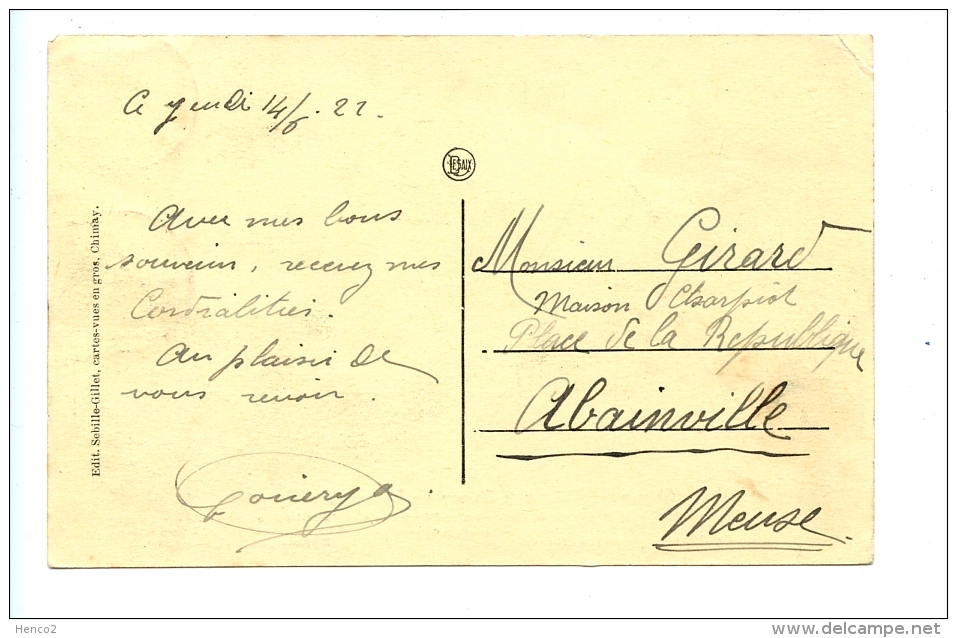 Ce jeudi 14/6.22.
DESAIX
Avec mes bons
souvenirs, recevez mes
Cordialités.
Au plaisir de
vous revoir.
Edit. Sebille-Gillet, cartes-vues en gros, Chimay.
Monsieur Girard
Maison Charpiot
Place de la Republique
Abainville
Meuse
Henco2
www.delcampe.net